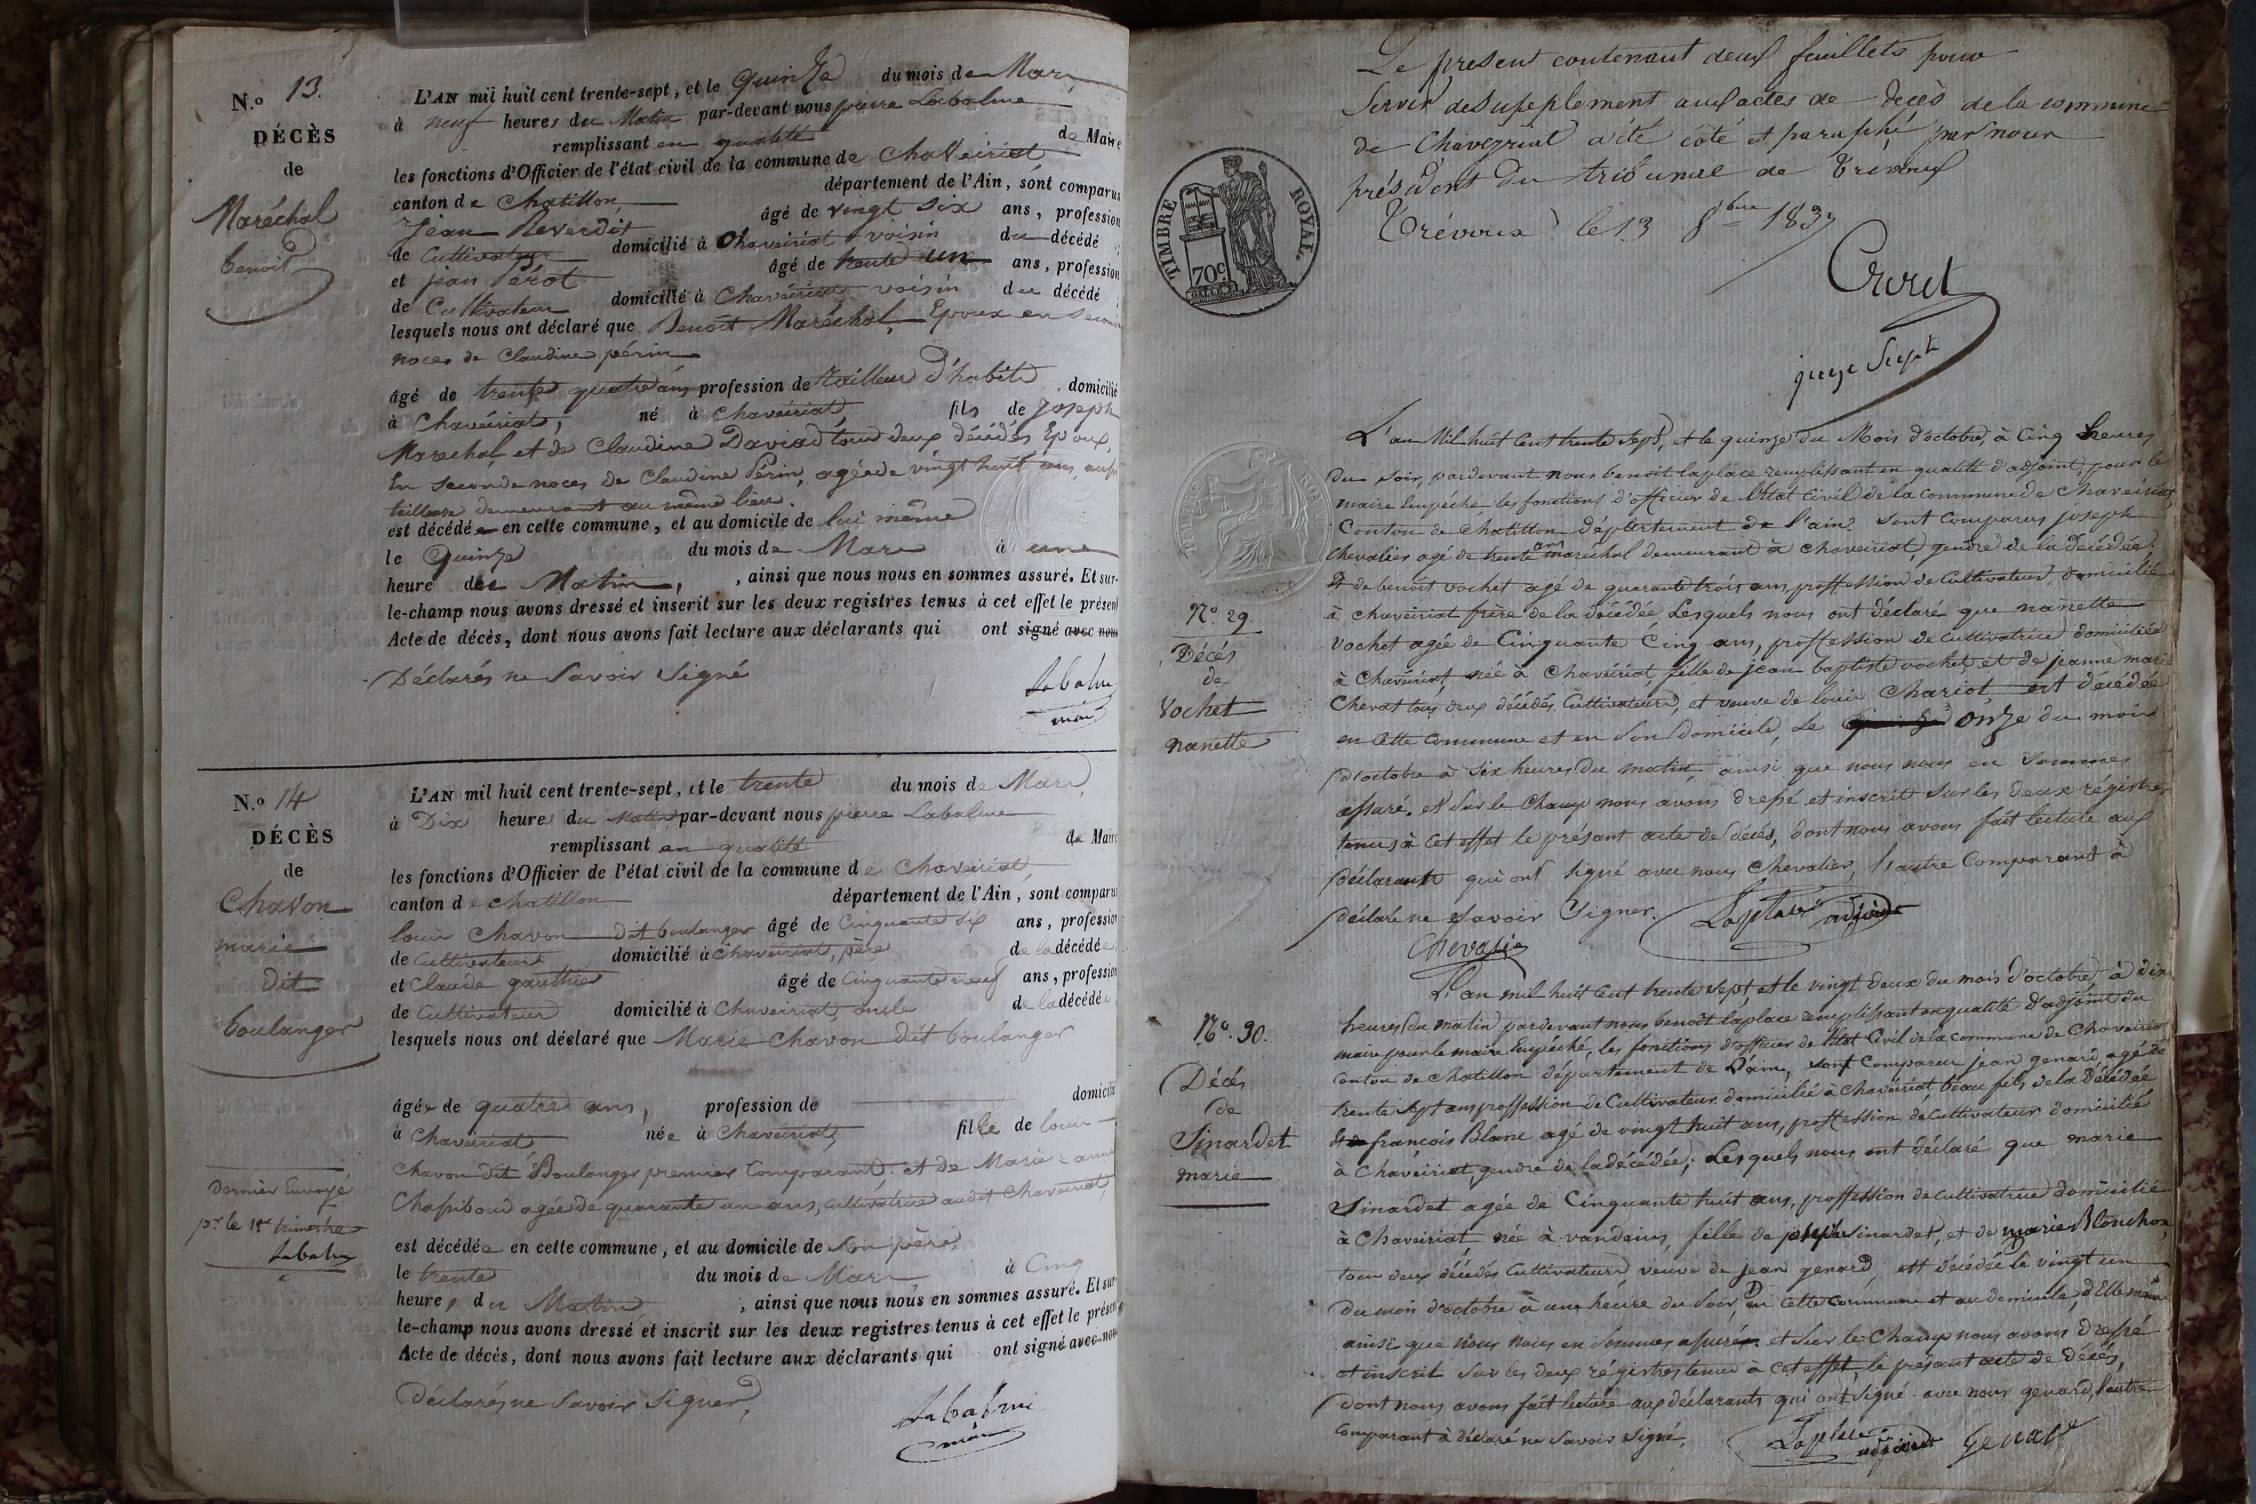 N.o 13.
DÉCÈS
de
Maréchal
benoit
L'AN mil huit cent trente-sept, et le quinze du mois de Mars
à neuf heures du Matin par-devant nous pierre Labalme
remplissant en qualité de Maire
les fonctions d'Officier de l'état civil de la commune de Chaveiriat
canton de Chatillon, département de l'Ain, sont comparus
Jean Reverdit âgé de vingt six ans, profession
de Cultivateur domicilié à Chaveiriat voisin du décédé ;
et jean Pérot âgé de trente un ans, profession
de Cultivateur domicilié à Chavéiriat voisin du décédé ;
lesquels nous ont déclaré que Benoit Maréchal, Epoux en second
noces de Claudine périn
âgé de trente quatre ans profession de tailleur d'habits domicilié
à Chavéiriat, né à Chaveiriat, fils de Joseph
Marechal et de Claudine David tous deux décédés Epoux,
En seconde noces de Claudine Périn, agée de vingt huit ans, aussi
tailleuse demeurant au même lieu.
est décédé en cette commune, et au domicile de lui même
le Quinze du mois de Mars à une
heure du Matin, , ainsi que nous nous en sommes assuré. Et sur-
le-champ nous avons dressé et inscrit sur les deux registres tenus à cet effet le présent
Acte de décès, dont nous avons fait lecture aux déclarants qui ont signé avec nous
Déclarés ne Savoir Signé
Labalme
maire
N.o 14
DÉCÈS
de
Chavon
marie
dit
boulanger
Dernier Envoyé
pr le 1er trimestre
Labalme
L'AN mil huit cent trente-sept, et le trente du mois de Mars,
à Dix heures du Matin par-devant nous pierre Labalme
remplissant en qualité de Maire
les fonctions d'Officier de l'état civil de la commune de Chaveiriat,
canton de chatillon département de l'Ain, sont comparus
louis Chavon dit boulanger âgé de Cinquante six ans, profession
de Cultivateur domicilié à Chaveiriat, père de la décédée,
et Claude gauthier âgé de Cinquante neuf ans, profession
de Cultivateur domicilié à Chaveiriat, oncle de la décédée
lesquels nous ont déclaré que Marie Chavon dit boulanger
âgée de quatre ans, profession de domicilié
à Chaveiriat, née à Chaveiriat, fille de louis
Chavon dit Boulanger premier Comparant, et de Marie-anne
agée de quarante un ans, cultivatrice audit Chaveiriat,
est décédée en cette commune, et au domicile de son père,
le trente du mois de Mars à Cinq
heures du Matin , ainsi que nous nous en sommes assuré. Et sur-
le-champ nous avons dressé et inscrit sur les deux registres tenus à cet effet le présent
Acte de décès, dont nous avons fait lecture aux déclarants qui ont signé avec nous
Déclarés ne Savoir Signer,
Labalme
maire
Le présent contenant deux feuillets pour
Servir de Supeplement aux actes de decès de la commune
de Chaveyriat a été coté et paraphé par nous
président du tribunal de Trévoux
Trévoux le 13 8bre 1837
juge Supt
TIMBRE ROYAL.
70c.
L'an Mil huit Cent trente Sept, et le quinze du Mois d'octobre, à Cinq heures
du soir, pardevant nous benoit laplace remplissant en qualité d'adjoint, pour le
maire Empéché les fonctions d'officier de l'Etat Civil de la Commune de Chaveiriat,
Conton de Chatillon départertement de l'ain. Sont Comparus joseph
Chevalier agé de trente ans maréchal demeurant à Chaveiriat, gendre de la décédée.
Et de benoit vochet agé de quarante trois ans, proffession de Cultivateur, domicilié
à chaveiriat frère de la décédée Lesquels nous ont déclaré que nanette
vochet agée de Cinquante Cinq ans, proffession de Cultivatrice domiciliée
à Chaveiriat, née à Chavéiriat, fille de jean baptiste vochet, et de jeanne marie
Chevat tous deux décédés Cultivateurs, et veuve de louis Chariot, est décédée
en Cette Commune et en Son domicile, Le onze du mois
d'octobre à Six heures du matin ainsi que nous nous en Sommes
assuré. et Sur le Champ nous avons dressé et inscrit Sur les deux régistres
tenus à Cet effet le présant acte de décés, dont nous avons fait lecture aux
déclarants qui ont signé avec nous Chevalier, l'autre Comparant à
déclaré ne Savoir Signer. Laplace adjoint
Chevalier
No. 29.
Décés
de
Vochet
nanette
L'an mil huit Cent trente Sept, et le vingt deux du mois d'octobre à dix
heures du matin pardevant nous benoit laplace remplissant en qualité d'adjoint du
maire pour le maire Empéché, les fonctions d'officier de l'état Civil de la Commune de Chaveiriat
Conton de Chatillon département de L'ain, sont Comparus jean genard, agé de
trente Sept ans proffession de Cultivateur domicilié à Chavéiriat beau fils de la Décédée
Et françois Blanc agé de vingt huit ans, proffession de Cultivateur domicilié
à Chaveiriat, gendre de la décédée; Lesquels nous ont déclaré que marie
Sinardet agée de Cinquante huit ans, proffession de Cultivatrice domicilié
à Chaveiriat née à vandeins, fille de joseph Sinardet, et de marie Blonchon,
tous deux décédés Cultivateurs, veuve de jean genard, est décédée le vingt un
du mois d'octobre à une heure du Soir, en Cette Commune et au domicile, d'Elle même
ainsi que nous nous en Sommes assurés. et Sur le Champ nous avons Dressé
et inscrit Sur les deux régistres tenus à Cet effet, le présant acte de Décés,
dont nous avons fait lecture aux déclarants qui ont signé avec nous genard, l'autre
Comparant à déclaré ne Savoir Signé.
Laplace adjoint Genard
No. 30.
Décés
de
Sinardet
marie